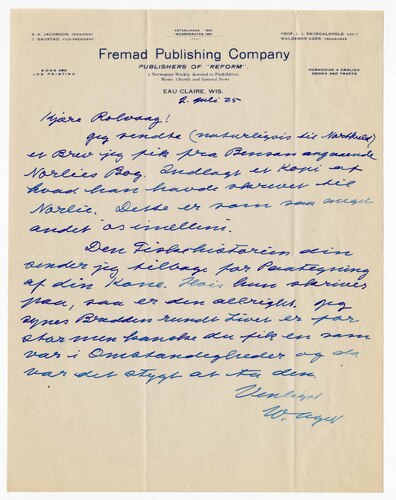 A. A. JACOBSON, PRESIDENT
J. GAUSTAD, VICE-PRESIDENT
ESTABLISHED 1890
INCORPORATED 1901
PROF. J. J. SKORDALSVOLD, SEC'Y
WALDEMAR AGER, TREASURER
Fremad Publishing Company
PUBLISHERS OF "REFORM"
A Norwegian Weekly devoted to Prohibition,
Home, Church and General News
BOOK AND
JOB PRINTING
NORWEGIAN & ENGLISH
BOOKS AND TRACTS
EAU CLAIRE, WIS.
2 Juli 25
Kjære Rolvaag!
Jeg sendte (naturligvis til Northfield)
et Brev jeg fik fra Benson angaaende
Norlies Bog. Indlagt et Kopi af
hvad han havde skrevet til
Norlie. Dette er som saa meget
andet os imellem.
Den Fiskehistorien din
sender jeg tilbage for Paategning
af din Kone. Hvis hun skriver
paa, saa er den allright. Jeg
synes Bredden rundt Livet er for
stor men kanske du fik en som
var i Omstændigheder og da
var det stygt at ta den.
Venligst
W. Ager